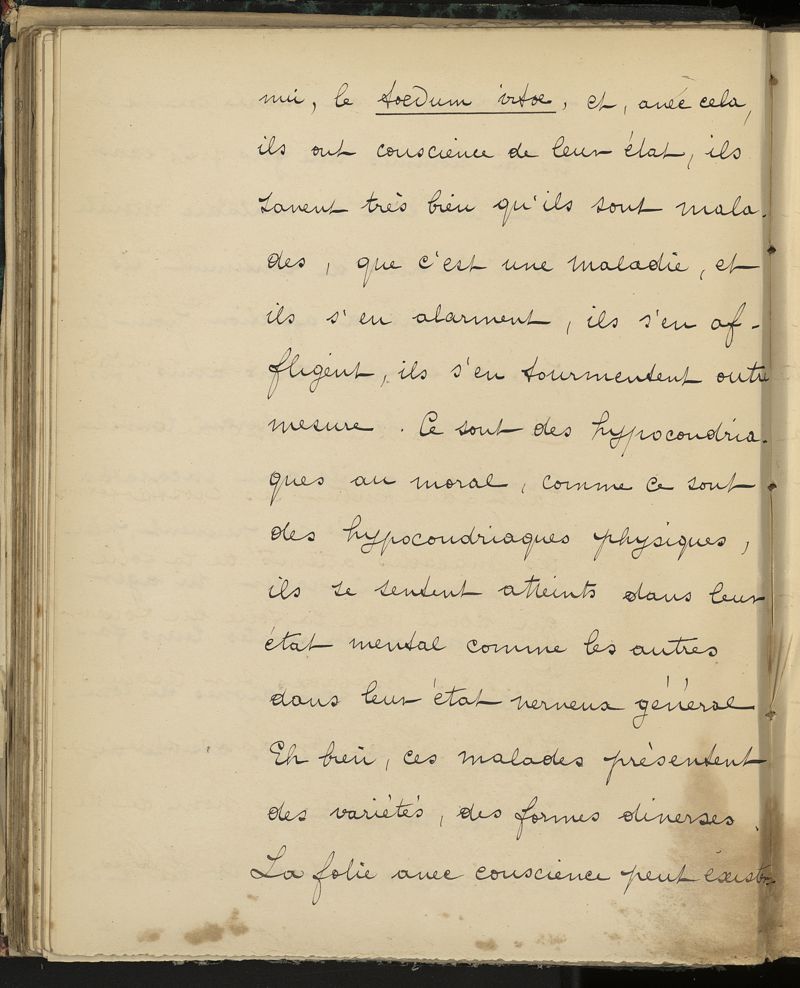 nui, le toedum vitoe, et, avec cela,
ils ont conscience de leur état, ils
savent très bien qu'ils sont mala-
des, que c'est une maladie, et
ils s'en alarment, ils s'en af-
fligent, ils s'en tourmentent outre
mesure. Ce sont des hypocondria-
ques au moral, comme ce sont
des hypocondriaques physiques,
ils se sentent atteints dans leur
état mental comme les autres
dans leur état nerveux général
Eh bien, ces malades présentent
des variétés, des formes diverses.
La folie avec conscience peut exister